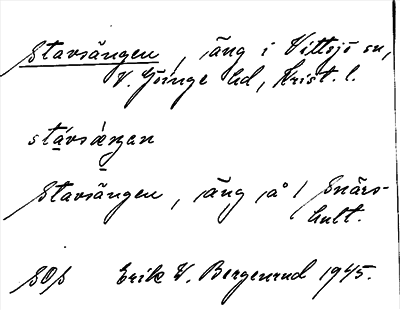 Stavsängen, äng i Vittsjö sn,
V. Göinge hd, Krist. l.
stávsὰ̣ŋən
Stavsängen, äng å 1 Snärs-
hult.
SOS Erik W. Bergenrud 1945.